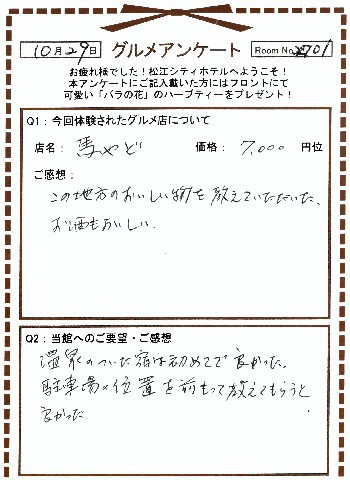 10月29日 グルメアンケート Room No. 701
お疲れ様でした！松江シティホテルへようこそ！
本アンケートにご記入戴いた方にはフロントにて
可愛い「バラの花」のハーブティーをプレゼント！
Q1：今回体験されたグルメ店について
店名： やど 価格： 7,000 円位
ご感想：
この地方のおいしい物を教えていただいた。
お酒もおいしい。
Q2：当館へのご要望・ご感想
温泉のついた宿は初めてで良かった。
駐車場の位置を前もって教えてもらうと
良かった